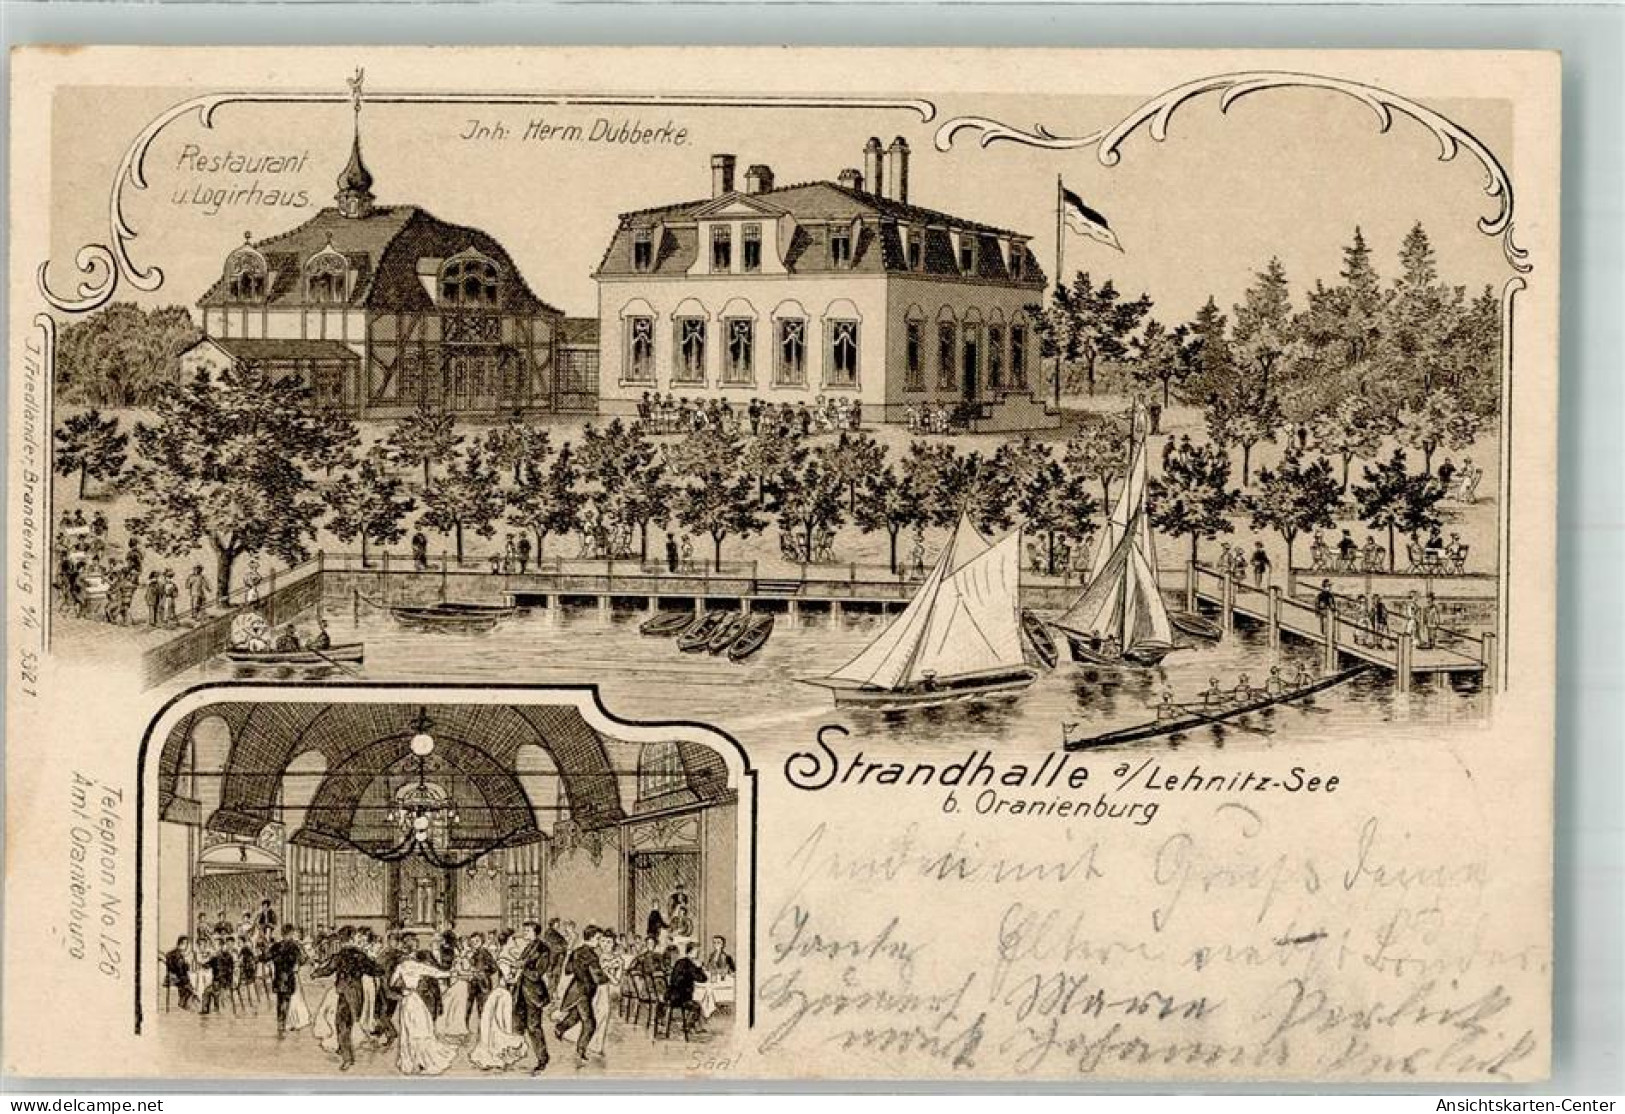 Restaurant
u. Logirhaus.
Inh: Herm. Dubberke.
J. Friedländer, Brandenburg a/H. 532 1
Telephon No. 126
Amt Oranienburg
Saal
Strandhalle a/Lehnitz-See
b. Oranienburg
senden mit Gruß Deine
Tante Eltern nebst Bruder
Maria
delcampe.net
Ansichtskarten-Center